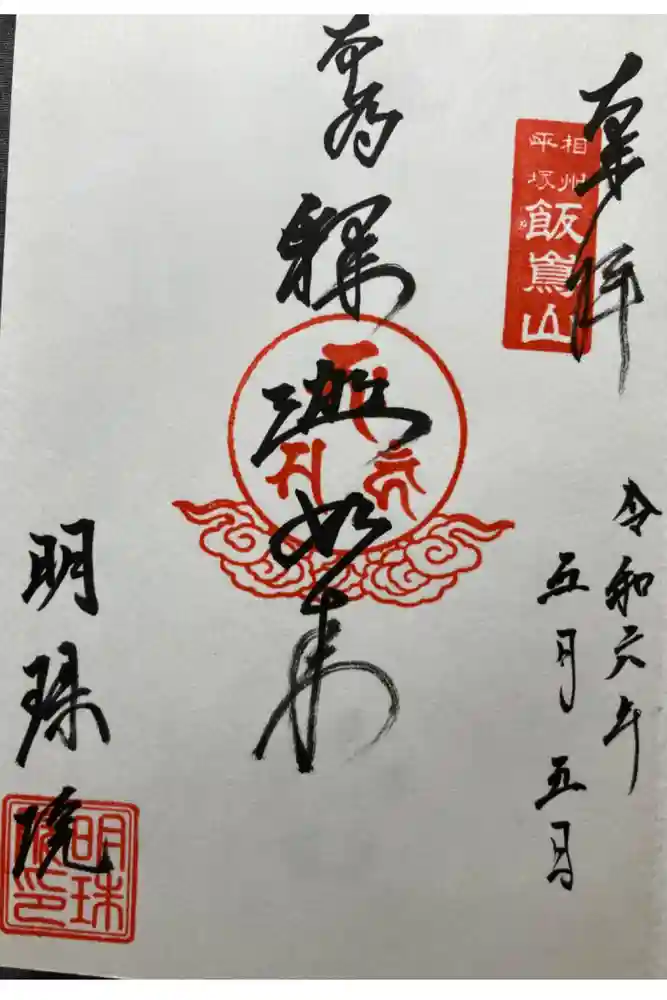 奉拝
相州
平塚
飯嶌山
令和六年
五月五日
本尊
釋迦如来
明珠院
明珠
院印